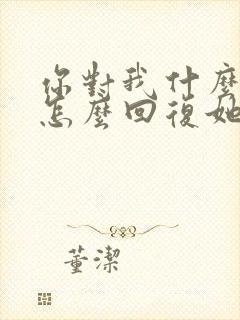 你對我什麼
怎麼回復她
董潔